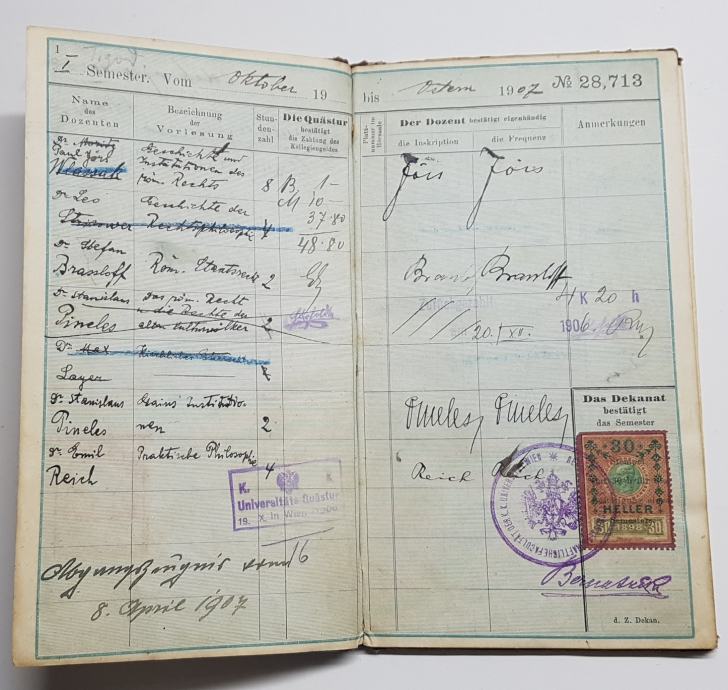 1
I Semester. Vom Oktober 19 bis Ostern 1907 № 28,713
Name des Dozenten
Bezeichnung der Vorlesung
Stundenzahl
Die Quästur bestätigt die Zahlung des Kollegiengeldes
Der Dozent bestätigt eigenhändig
die Inskription
die Frequenz
Anmerkungen
Dr. Moritz
Paul Jörs Geschichte und
Wlassak Institutionen des
röm. Rechts 8 B 1-
M 10-
Jörs Jörs
Dr. Leo Geschichte der 37·80
Strisower Rechtsphilosophie 4 48·80
Dr. Stefan
Brassloff Röm. Staatsrecht 2
Brassloff
4 K 20 h
Dr. Stanislaus Das röm. Recht
u die Rechte der
Pineles alten Kulturvölker 2
20. XII. 1906
Dr. Max
Layer
Dr. Stanislaus Gaius Institutio-
Pineles nen 2
Pineles Pineles
Dr. Emil Praktische Philosophie 4
Reich
Reich Reich
Das Dekanat
bestätigt
das Semester
30
HELLER
30 1898 30
K. K.
Universitäts Quästur
19. X. in Wien
Abgangszeugnis vom 16
8. April 1907
d. Z. Dekan.